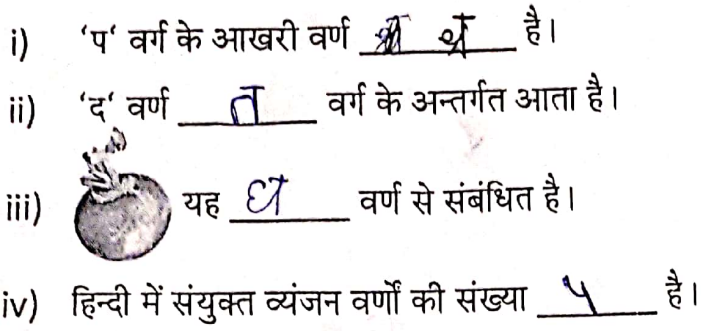 i) 'प' वर्ग के आखरी वर्ण है।
ii) 'द' वर्ण त वर्ग के अन्तर्गत आता है।
iii) यह घ वर्ण से संबंधित है।
iv) हिन्दी में संयुक्त व्यंजन वर्णों की संख्या ५ है।